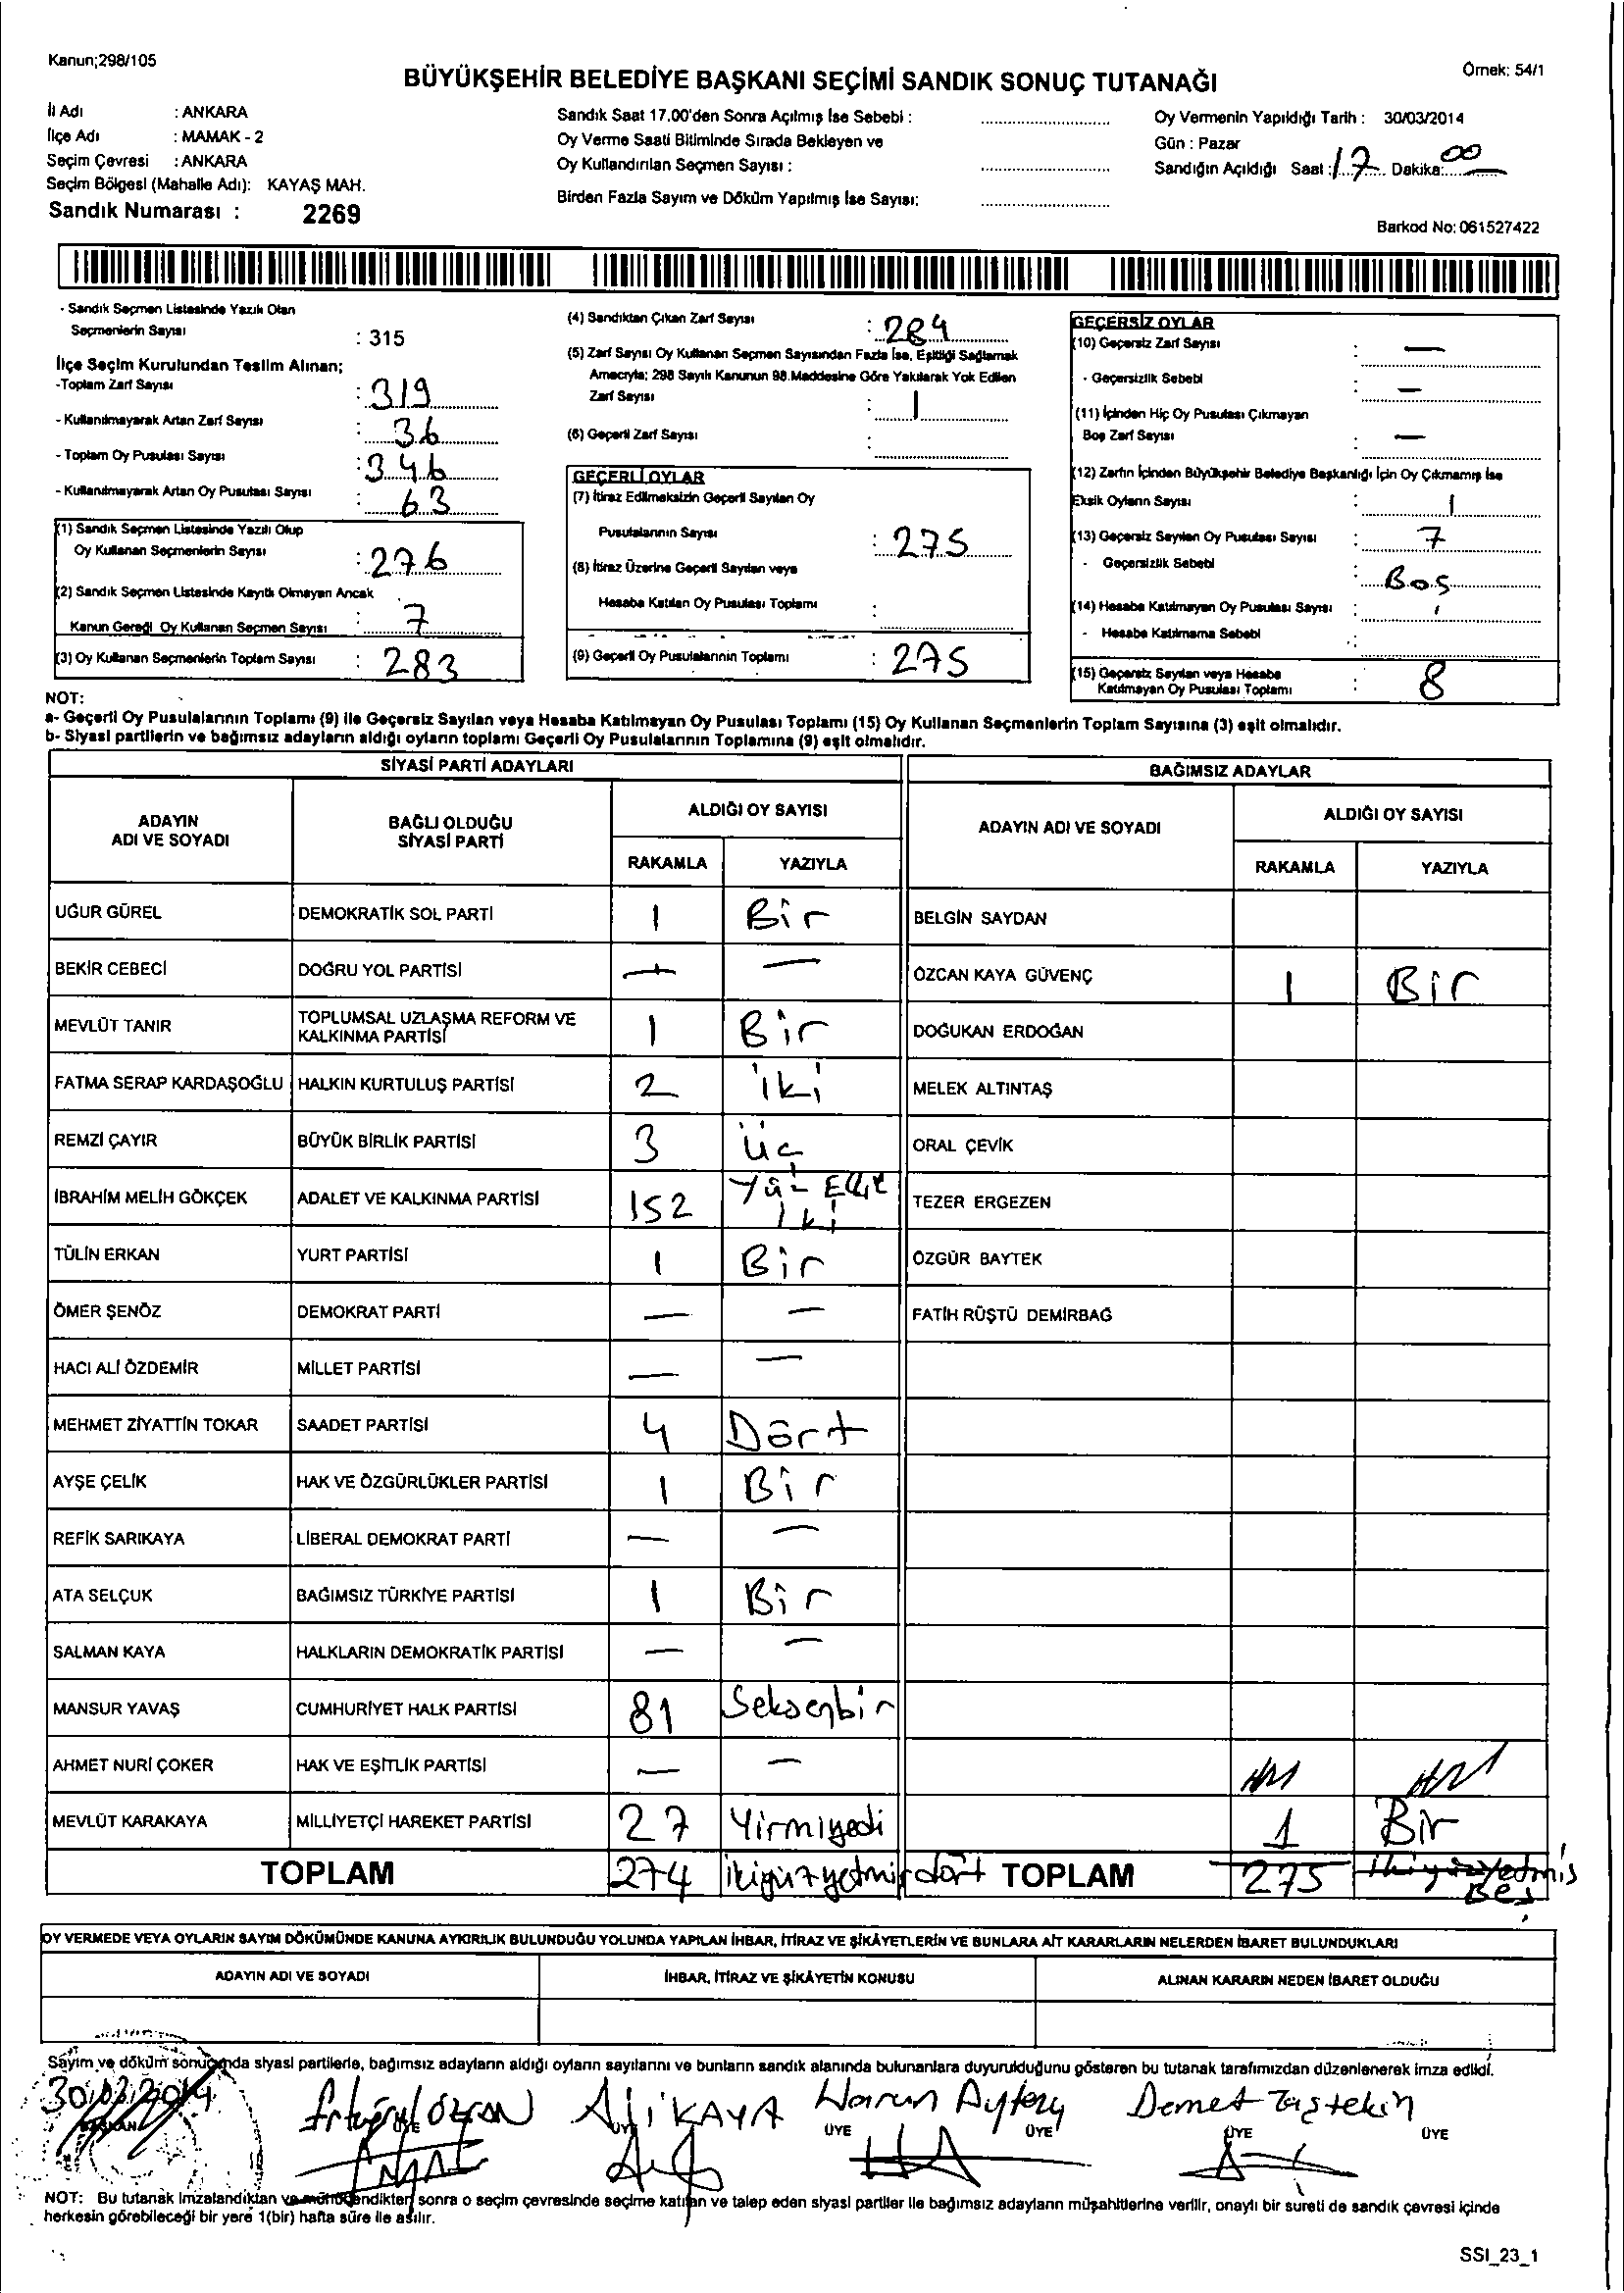 Kanun;298/105
Örnek: 54/1
BÜYÜKŞEHİR BELEDİYE BAŞKANI SEÇİMİ SANDIK SONUÇ TUTANAĞI
İl Adı : ANKARA
İlçe Adı : MAMAK - 2
Seçim Çevresi : ANKARA
Seçim Bölgesi (Mahalle Adı): KAYAŞ MAH.
Sandık Numarası : 2269
Sandık Saat 17.00'den Sonra Açılmış İse Sebebi :
Oy Verme Saati Bitiminde Sırada Bekleyen ve
Oy Kullandırılan Seçmen Sayısı :
Birden Fazla Sayım ve Döküm Yapılmış İse Sayısı:
Oy Vermenin Yapıldığı Tarih : 30/03/2014
Gün : Pazar
Sandığın Açıldığı Saat : 17 Dakika: 00
Barkod No: 061527422
- Sandık Seçmen Listesinde Yazılı Olan
Seçmenlerin Sayısı : 315
İlçe Seçim Kurulundan Teslim Alınan;
-Toplam Zarf Sayısı : 319
- Kullanılmayarak Artan Zarf Sayısı : 36
- Toplam Oy Pusulası Sayısı : 346
- Kullanılmayarak Artan Oy Pusulası Sayısı : 63
(1) Sandık Seçmen Listesinde Yazılı Olup
Oy Kullanan Seçmenlerin Sayısı : 276
(2) Sandık Seçmen Listesinde Kayıtlı Olmayan Ancak
Kanun Gereği Oy Kullanan Seçmen Sayısı : 7
(3) Oy Kullanan Seçmenlerin Toplam Sayısı : 283
(4) Sandıktan Çıkan Zarf Sayısı : 284
(5) Zarf Sayısı Oy Kullanan Seçmen Sayısından Fazla İse, Eşitliği Sağlamak
Amacıyla; 298 Sayılı Kanunun 98.Maddesine Göre Yakılarak Yok Edilen
Zarf Sayısı : 1
(6) Geçerli Zarf Sayısı :
GEÇERLİ OYLAR
(7) İtiraz Edilmeksizin Geçerli Sayılan Oy
Pusulalarının Sayısı : 275
(8) İtiraz Üzerine Geçerli Sayılan veya
Hesaba Katılan Oy Pusulası Toplamı :
(9) Geçerli Oy Pusulalarının Toplamı : 275
GEÇERSİZ OYLAR
(10) Geçersiz Zarf Sayısı : —
- Geçersizlik Sebebi : —
(11) İçinden Hiç Oy Pusulası Çıkmayan
Boş Zarf Sayısı : —
(12) Zarfın İçinden Büyükşehir Belediye Başkanlığı İçin Oy Çıkmamış İse
Eksik Oyların Sayısı : 1
(13) Geçersiz Sayılan Oy Pusulası Sayısı : 7
- Geçersizlik Sebebi : Boş
(14) Hesaba Katılmayan Oy Pusulası Sayısı :
- Hesaba Katılmama Sebebi :
(15) Geçersiz Sayılan veya Hesaba
Katılmayan Oy Pusulası Toplamı : 8
NOT:
a- Geçerli Oy Pusulalarının Toplamı (9) ile Geçersiz Sayılan veya Hesaba Katılmayan Oy Pusulası Toplamı (15) Oy Kullanan Seçmenlerin Toplam Sayısına (3) eşit olmalıdır.
b- Siyasi partilerin ve bağımsız adayların aldığı oyların toplamı Geçerli Oy Pusulalarının Toplamına (9) eşit olmalıdır.
SİYASİ PARTİ ADAYLARI
BAĞIMSIZ ADAYLAR
ADAYIN ADI VE SOYADI
BAĞLI OLDUĞU SİYASİ PARTİ
ALDIĞI OY SAYISI
RAKAMLA YAZIYLA
ADAYIN ADI VE SOYADI
ALDIĞI OY SAYISI
RAKAMLA YAZIYLA
UĞUR GÜREL DEMOKRATİK SOL PARTİ 1 Bir BELGİN SAYDAN
BEKİR CEBECİ DOĞRU YOL PARTİSİ — — ÖZCAN KAYA GÜVENÇ 1 Bir
MEVLÜT TANIR TOPLUMSAL UZLAŞMA REFORM VE KALKINMA PARTİSİ 1 Bir DOĞUKAN ERDOĞAN
FATMA SERAP KARDAŞOĞLU HALKIN KURTULUŞ PARTİSİ 2 iki MELEK ALTINTAŞ
REMZİ ÇAYIR BÜYÜK BİRLİK PARTİSİ 3 üç ORAL ÇEVİK
İBRAHİM MELİH GÖKÇEK ADALET VE KALKINMA PARTİSİ 152 Yüz Elli iki TEZER ERGEZEN
TÜLİN ERKAN YURT PARTİSİ 1 Bir ÖZGÜR BAYTEK
ÖMER ŞENÖZ DEMOKRAT PARTİ — — FATİH RÜŞTÜ DEMİRBAĞ
HACI ALİ ÖZDEMİR MİLLET PARTİSİ — —
MEHMET ZİYATTİN TOKAR SAADET PARTİSİ 4 Dört
AYŞE ÇELİK HAK VE ÖZGÜRLÜKLER PARTİSİ 1 Bir
REFİK SARIKAYA LİBERAL DEMOKRAT PARTİ — —
ATA SELÇUK BAĞIMSIZ TÜRKİYE PARTİSİ 1 Bir
SALMAN KAYA HALKLARIN DEMOKRATİK PARTİSİ — —
MANSUR YAVAŞ CUMHURİYET HALK PARTİSİ 81 Seksenbir
AHMET NURİ ÇOKER HAK VE EŞİTLİK PARTİSİ — —
MEVLÜT KARAKAYA MİLLİYETÇİ HAREKET PARTİSİ 27 Yirmiyedi 1 Bir
TOPLAM 274 ikiyüzyetmişdört TOPLAM 275 ikiyüzyetmiş Beş
OY VERMEDE VEYA OYLARIN SAYIM DÖKÜMÜNDE KANUNA AYKIRILIK BULUNDUĞU YOLUNDA YAPILAN İHBAR, İTİRAZ VE ŞİKÂYETLERİN VE BUNLARA AİT KARARLARIN NELERDEN İBARET BULUNDUKLARI
ADAYIN ADI VE SOYADI İHBAR, İTİRAZ VE ŞİKÂYETİN KONUSU ALINAN KARARIN NEDEN İBARET OLDUĞU
Sayım ve döküm sonucunda siyasi partilerle, bağımsız adayların aldığı oyların sayılarını ve bunların sandık alanında bulunanlara duyurulduğunu gösteren bu tutanak tarafımızdan düzenlenerek imza edildi.
30/03/2014 Ertuğrul ÖZCAN Ali KAYA Harun Demet Taştekin
BAŞKAN ÜYE ÜYE ÜYE ÜYE ÜYE ÜYE
NOT: Bu tutanak imzalandıktan ve mühürlendikten sonra o seçim çevresinde seçime katılan ve talep eden siyasi partiler ile bağımsız adayların müşahitlerine verilir, onaylı bir sureti de sandık çevresi içinde
herkesin görebileceği bir yere 1(bir) hafta süre ile asılır.
SSI_23_1